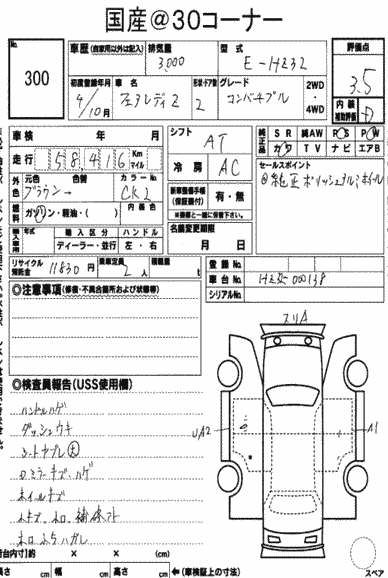 国産@30コーナー
No. 300
車歴(自家用以外は記入) 排気量 3,000 型式 E-HZ32 評価点 3.5
初度登録年月 4/10月 車名 フェアレディZ 形状・ドア数 2 グレード コンバーチブル 2WD・4WD
内装補助評価 D
車検 年 月 シフト AT 純正品 SR カワ 純AW TV PS ナビ PW エアB
走行 58,416 Km マイル 冷房 AC セールスポイント
外色 元色 ブラウン→ 色替 カラーNo. CK2 ◎純正ポリッシュアルミホイール
新車整備手帳(保証書付) 有・無
燃料 ガソリン・軽油・( ) 内装色 ※書類と一緒に保管下さい。
輸入車用 年式 輸入区分 ハンドル 名義変更期限
ディーラー・並行 左・右 月 日
リサイクル預託金 11830円 乗車定員 2人 積載量 t
登録No.
車台No. HZ32-000138
シリアルNo.
◎注意事項(修復・不具合箇所および状態等)
スリA
◎検査員報告(USS使用欄)
ハンドルハゲ
ダッシュウキ
シートヤブレ大
ロミラーキズ、ハゲ
ホイルキズ
UA2
A1
荷台内寸)約 × × (cm)
長さ cm 幅 cm 高さ cm ←(車検証上の寸法)
スペア